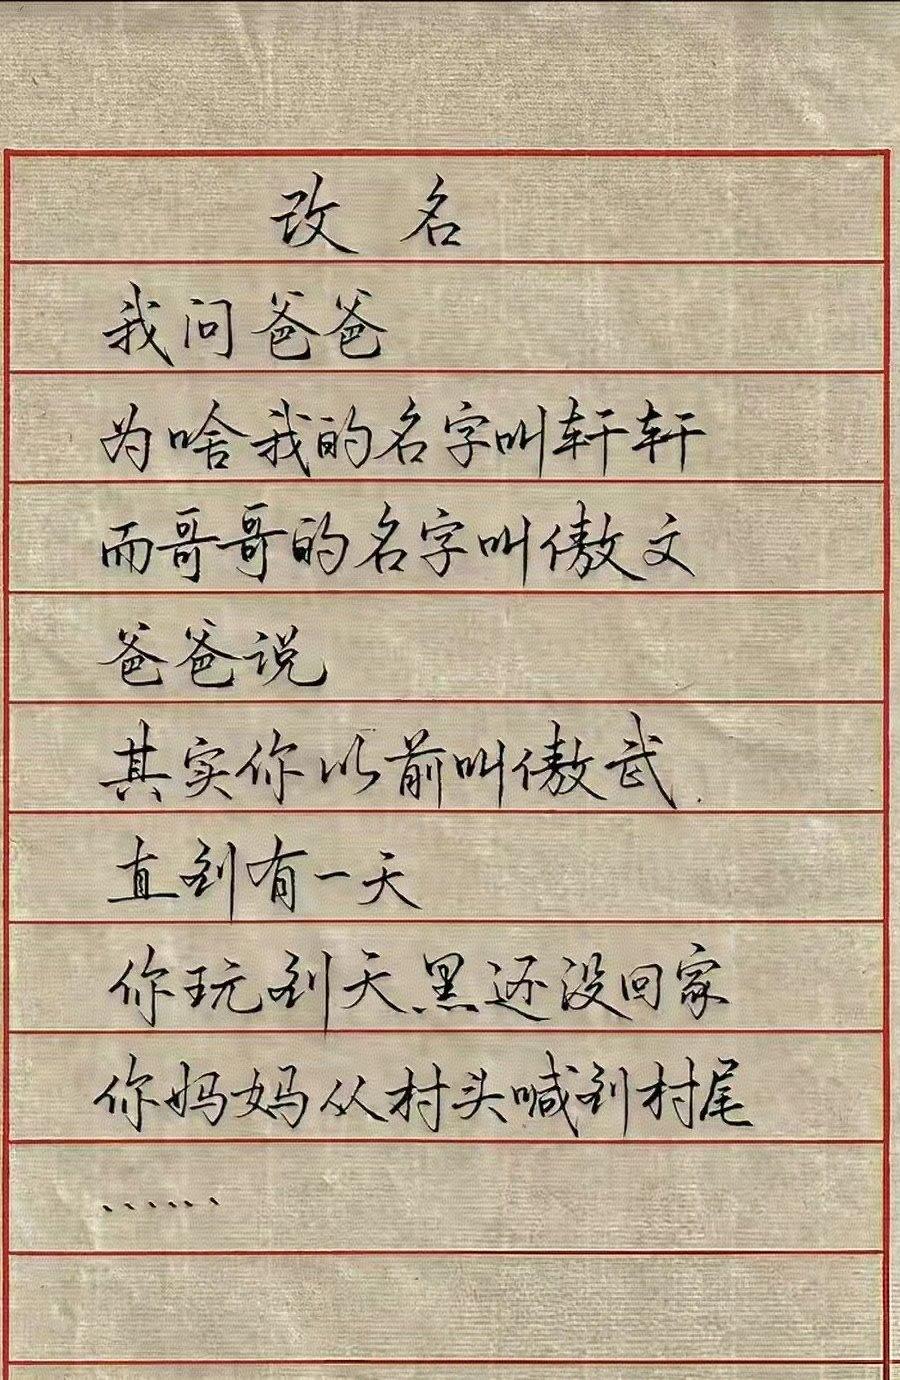 改 名
我问爸爸
为啥我的名字叫轩轩
而哥哥的名字叫傲文
爸爸说
其实你以前叫傲武.
直到有一天
你玩到天黑还没回家
你妈妈从村头喊到村尾
······